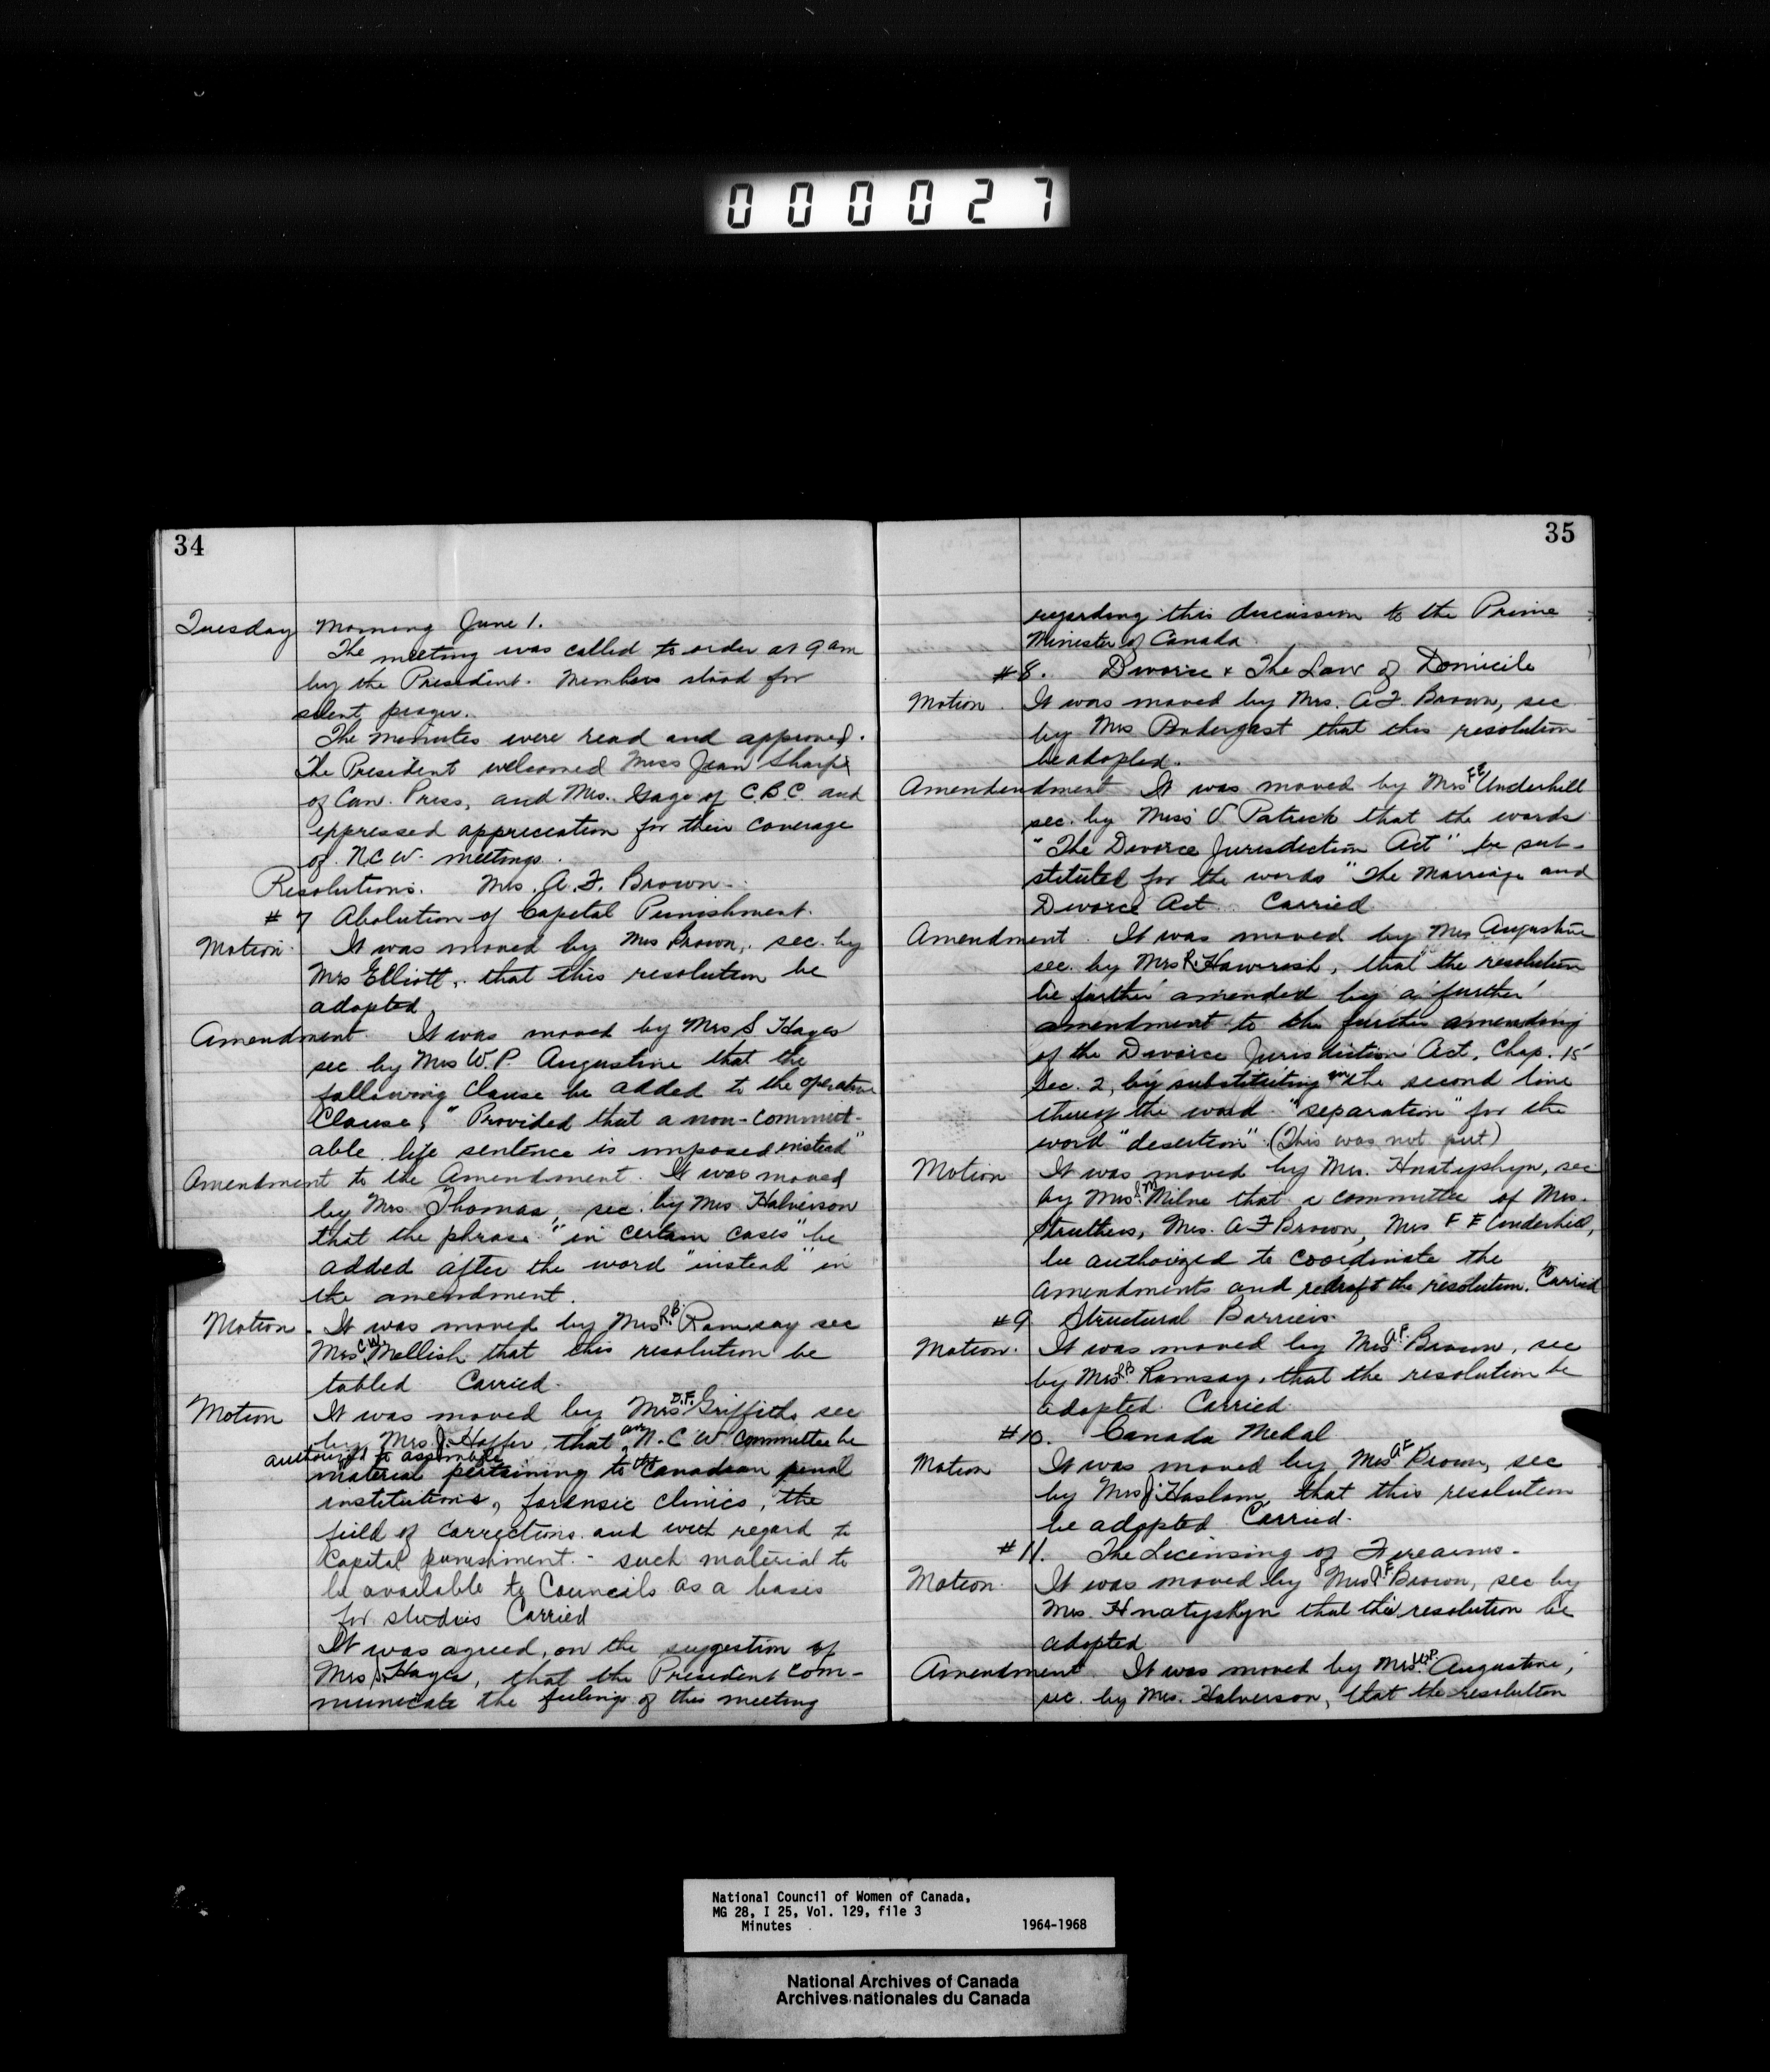 000027
34
Tuesday Morning June 1.
The meeting was called to order at 9 am
by the President. Members stood for
silent prayer.
The minutes were read and approved.
The President welcomed Miss Jean Sharpe
of Can. Press, and Mrs. Gage of C.B.C. and
expressed appreciation for their coverage
of N.C.W. meetings.
Resolutions. Mrs. A. F. Brown.
# 7 Abolution of Capital Punishment.
Motion. It was moved by Mrs Brown, sec. by
Mrs Elliott, that this resolution be
adopted
Amendment. It was moved by Mrs S Hayes
sec. by Mrs W. P. Augustine that the
following clause be added to the operative
Clause, "Provided that a non-commut-
able life sentence is imposed instead"
Amendment to the Amendment. It was moved
by Mrs Thomas, sec. by Mrs Halverson
that the phrase "in certain cases" be
added after the word "instead" in
the amendment.
Motion. It was moved by Mrs R.B. Ramsay sec
Mrs C.W. Mellish that this resolution be
tabled Carried.
Motion It was moved by Mrs D.F. Griffiths sec
by Mrs J. Hoffer that an N.C.W. Committee be
authorized to assemble
material pertaining to the Canadian penal
institutions, forensic clinics, the
field of corrections and with regard to
Capital punishment - such material to
be available to Councils as a basis
for studies Carried
It was agreed, on the suggestion of
Mrs S. Hayes, that the President com-
municate the feelings of this meeting
35
regarding this discussion to the Prime
Minister of Canada
#8. Divorce & The Law of Domicile
Motion. It was moved by Mrs. A F. Brown, sec
by Mrs Pendergast that this resolution
be adopted.
Amendendment It was moved by Mrs F E Underhill
sec. by Miss V Patrick that the words
"The Divorce Jurisdiction Act" be sub-
stituted for the words "The Marriage and
Divorce Act. Carried
Amendment. It was moved by Mrs Augustine
sec. by Mrs R. Hawrish, that the resolution
be further amended by a further
amendment to the further amending
of the Divorce Jurisdiction Act, Chap. 15
Sec. 2, by substituting in the second line
thereof the word "separation" for the
word "desertion" (This was not put)
Motion It was moved by Mrs. Hnatyshyn, sec
by Mrs Milne that a committee of Mrs.
Struthers, Mrs. A F Brown, Mrs F E Underhill,
be authorized to coordinate the
amendments and redraft the resolution. Carried
#9 Structural Barriers.
Motion. It was moved by Mrs A.F. Brown, sec
by Mrs R.B. Ramsay, that the resolution be
adopted. Carried.
#10. Canada Medal
Motion It was moved by Mrs A F Brown, sec
by Mrs J. Haslam, that this resolution
be adopted Carried.
#11. The Licensing of Firearms.
Motion. It was moved by Mrs A F Brown, sec by
Mrs. Hnatyshyn that this resolution be
adopted
Amendment. It was moved by Mrs. W.P. Augustine,
sec. by Mrs. Halverson, that the resolution
National Council of Women of Canada,
MG 28, I 25, Vol. 129, file 3
Minutes 1964-1968
National Archives of Canada
Archives nationales du Canada